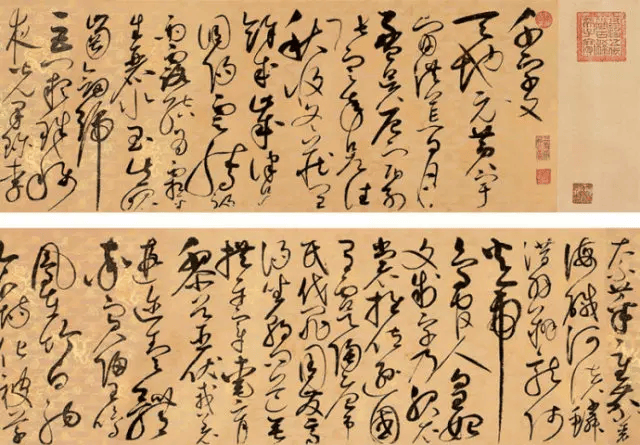 千字文
天地元黃宇
宙洪荒日月
盈昃辰宿列
張寒來暑往
秋收冬藏閏
餘成歲律呂
調陽雲騰致
雨露結為霜金
生麗水玉出崑
崗劍號
巨闕珠稱
夜光菓珍李
柰菜重芥薑
海鹹河淡鱗
潛羽翔龍師
火帝
鳥官人皇始
制文字乃服衣
裳推位遜國
有虞陶唐弔
民伐罪周發商
湯坐朝問道垂
拱平章愛育
黎首臣伏戎羌
遐邇壹體
率賓歸王鳴
鳳在竹白駒
食場化被草